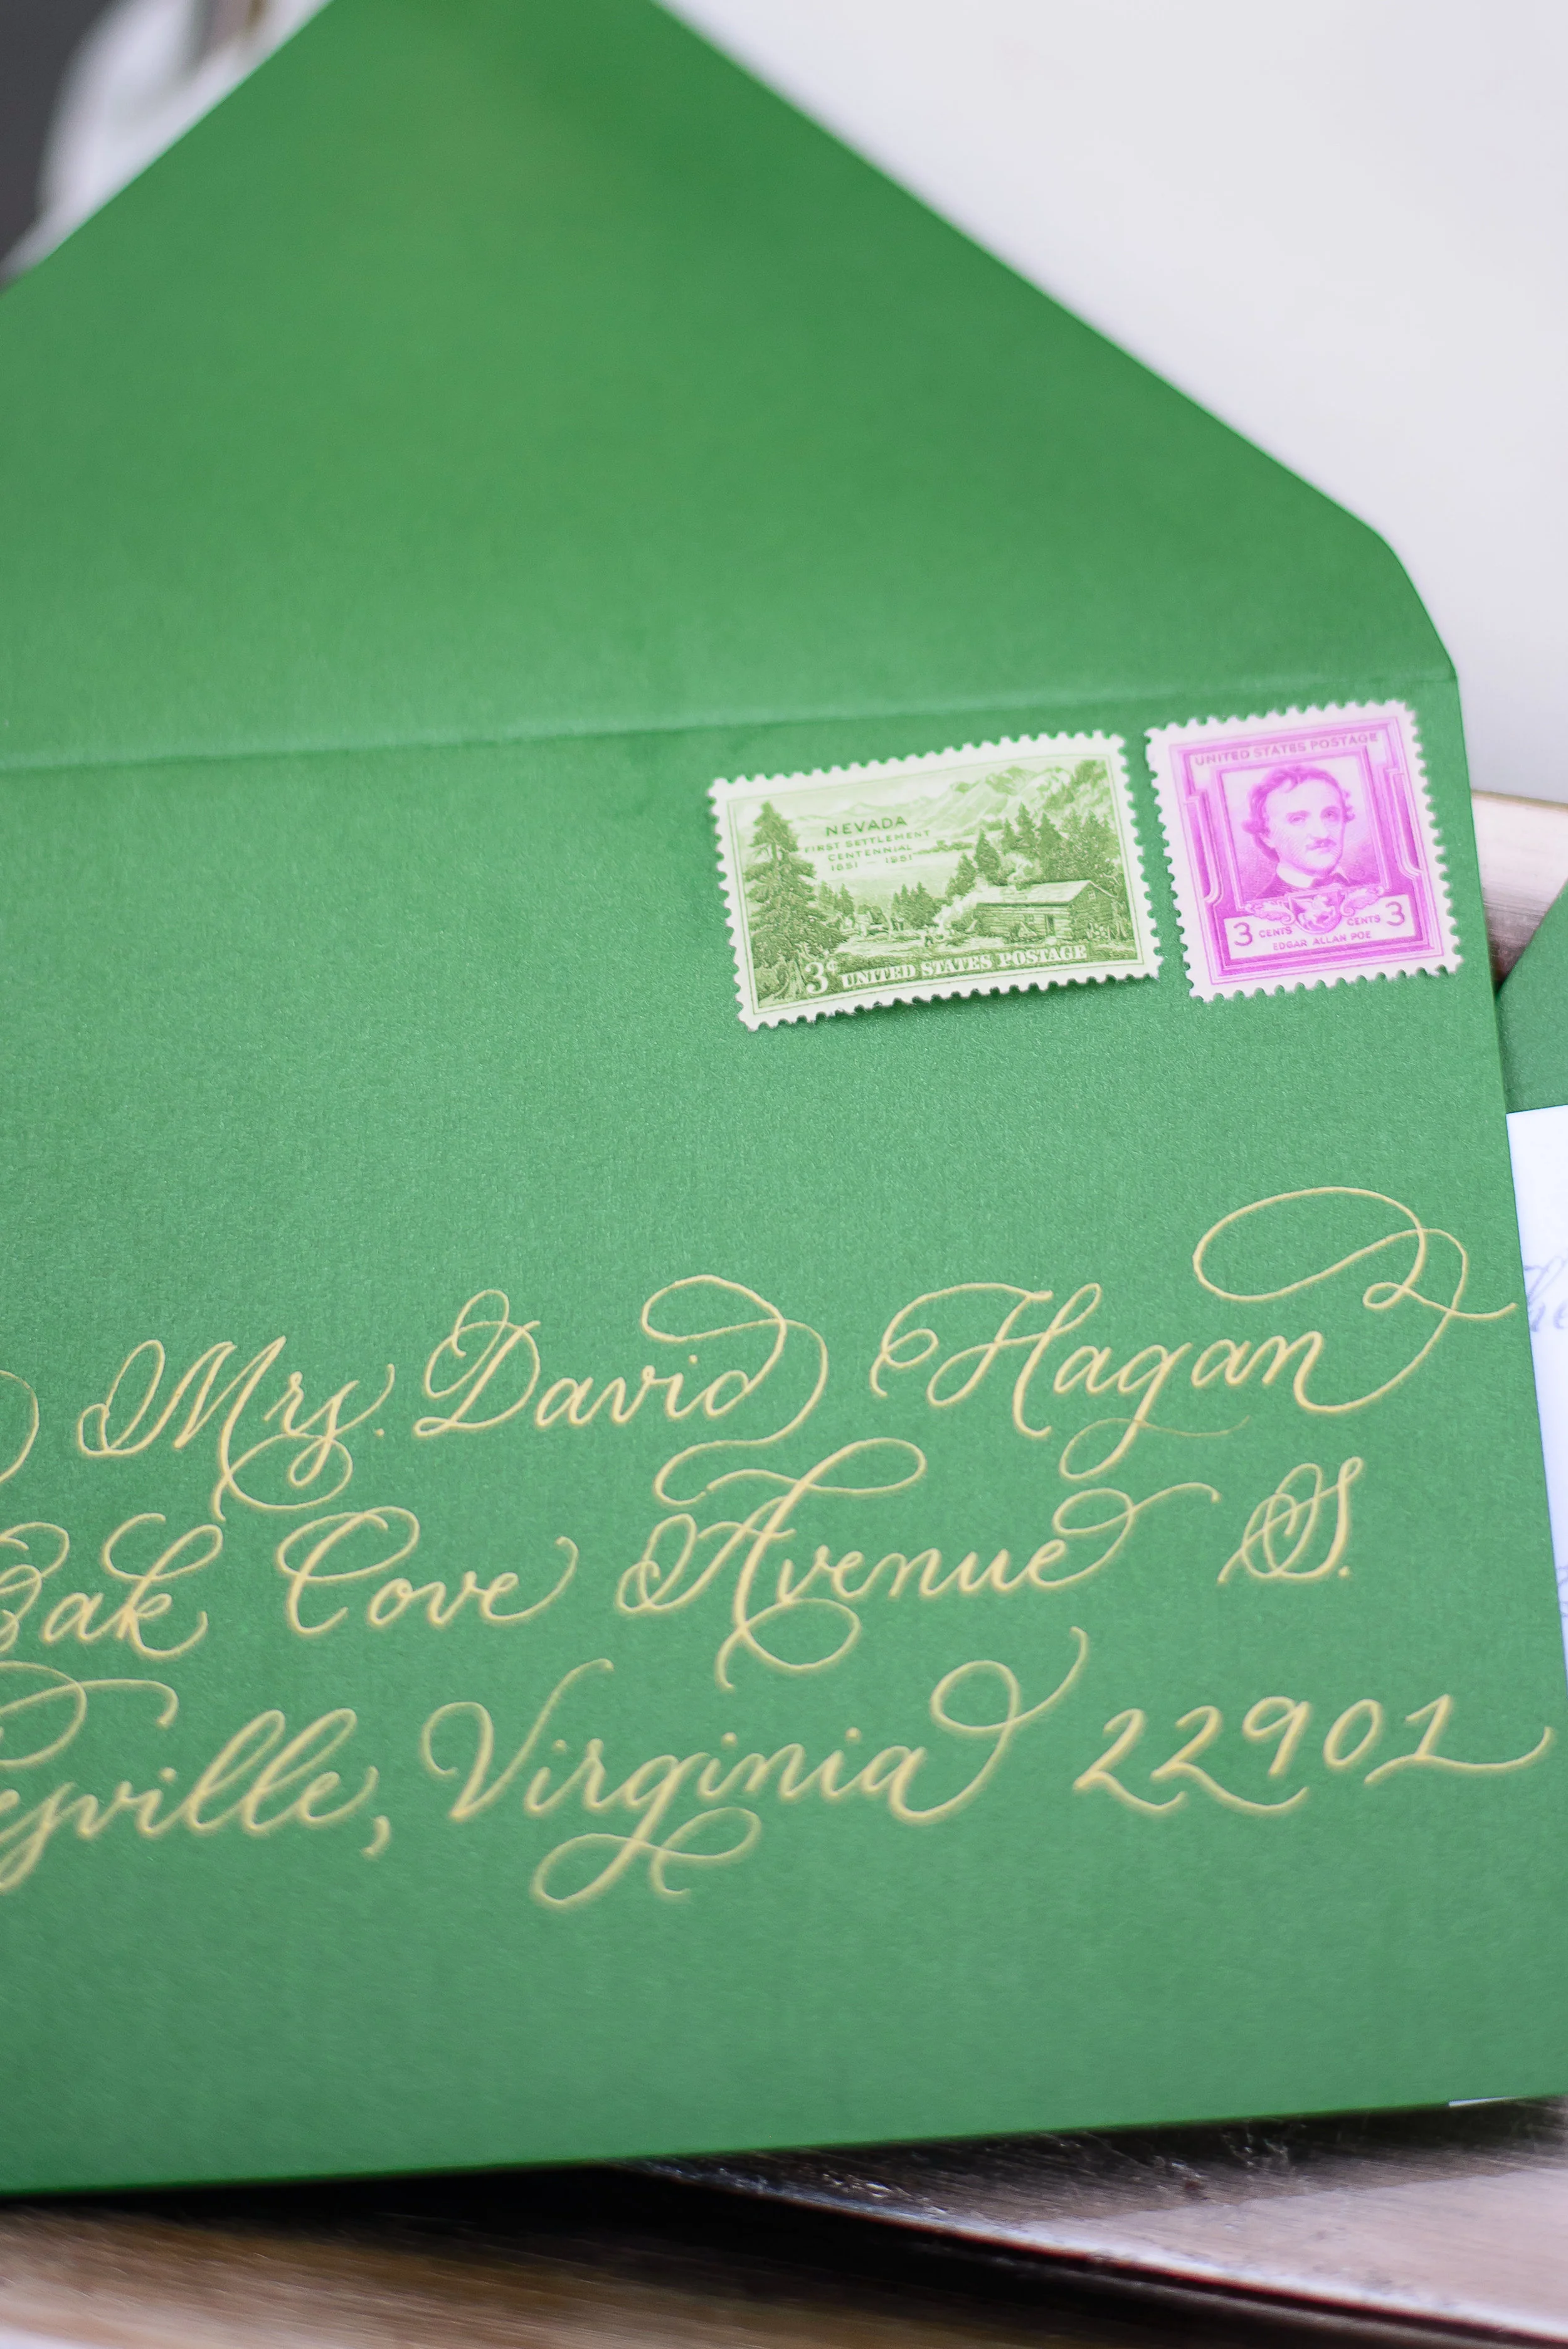 NEVADA
FIRST SETTLEMENT
CENTENNIAL
1851 – 1951
3¢ UNITED STATES POSTAGE
UNITED STATES POSTAGE
3 CENTS CENTS 3
EDGAR ALLAN POE
Mrs. David Hagan
Oak Cove Avenue S.
esville, Virginia 22901